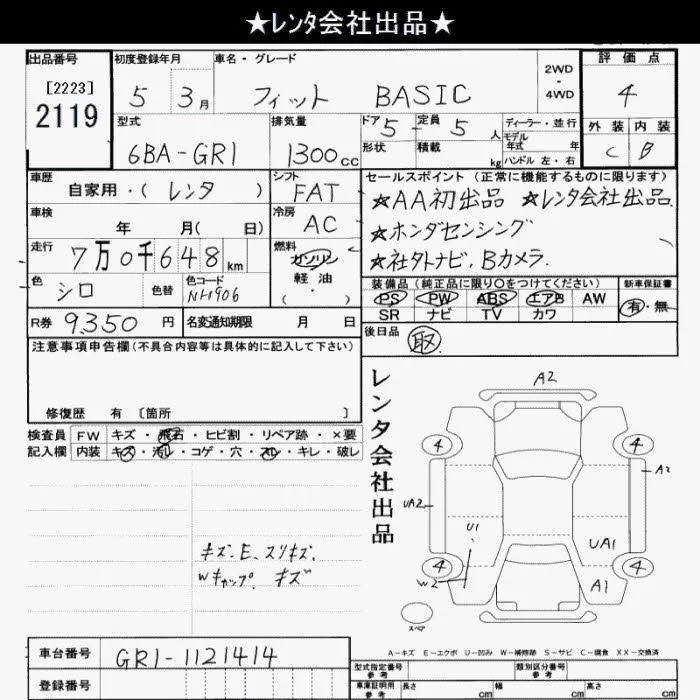 ★レンタ会社出品★
出品番号
[2223]
2119
初度登録年月
5 3月
車名・グレード
フィット BASIC
2WD
-
4WD
評価点
4
外装 内装
C B
型式
6BA-GR1
排気量
1300cc
ドア 5 定員 5人
形状 積載 kg
ディーラー・並行
モデル
年式 年
ハンドル 左・右
車歴
自家用・(レンタ)
シフト
FAT
車検
年 月( 日)
冷房
AC
走行
7万0千648km
燃料
ガソリン
軽油
(・)
色
シロ
色替
色コード
NH906
R券 9,350円
名変通知期限 月 日
セールスポイント(正常に機能するものに限ります)
★AA初出品 ★レンタ会社出品
★ホンダセンシング
★社外ナビ,Bカメラ.
装備品(純正品に限り○をつけてください)
新車保証書
PS PW ABS エアB AW
SR ナビ TV カワ
有・無
後日品
取
注意事項申告欄(不具合内容等は具体的に記入して下さい)
修復歴 有 [箇所 ]
検査員
記入欄
FW キズ・飛石・ヒビ割・リペア跡・×要
内装 キズ・汚レ・コゲ・穴・スレ・キレ・破レ
キズ.E.スリキズ.
Wキャップ キズ
レンタ会社出品
A2
4
4
A2
UA2
U1
UA1
4
W2
4
A1
スペア
A-キズ E-エクボ U-凹み W-補修跡 S-サビ C-腐食 XX-交換済
車台番号
GR1-1121414
登録番号
型式指定番号
参考
類別区分番号
参考
車庫証明用
参考
長さ cm
幅 cm
高さ cm